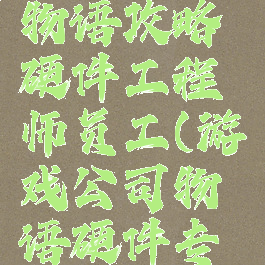 物语攻略
硬件工程
师员工(游
戏公司物
语硬件专